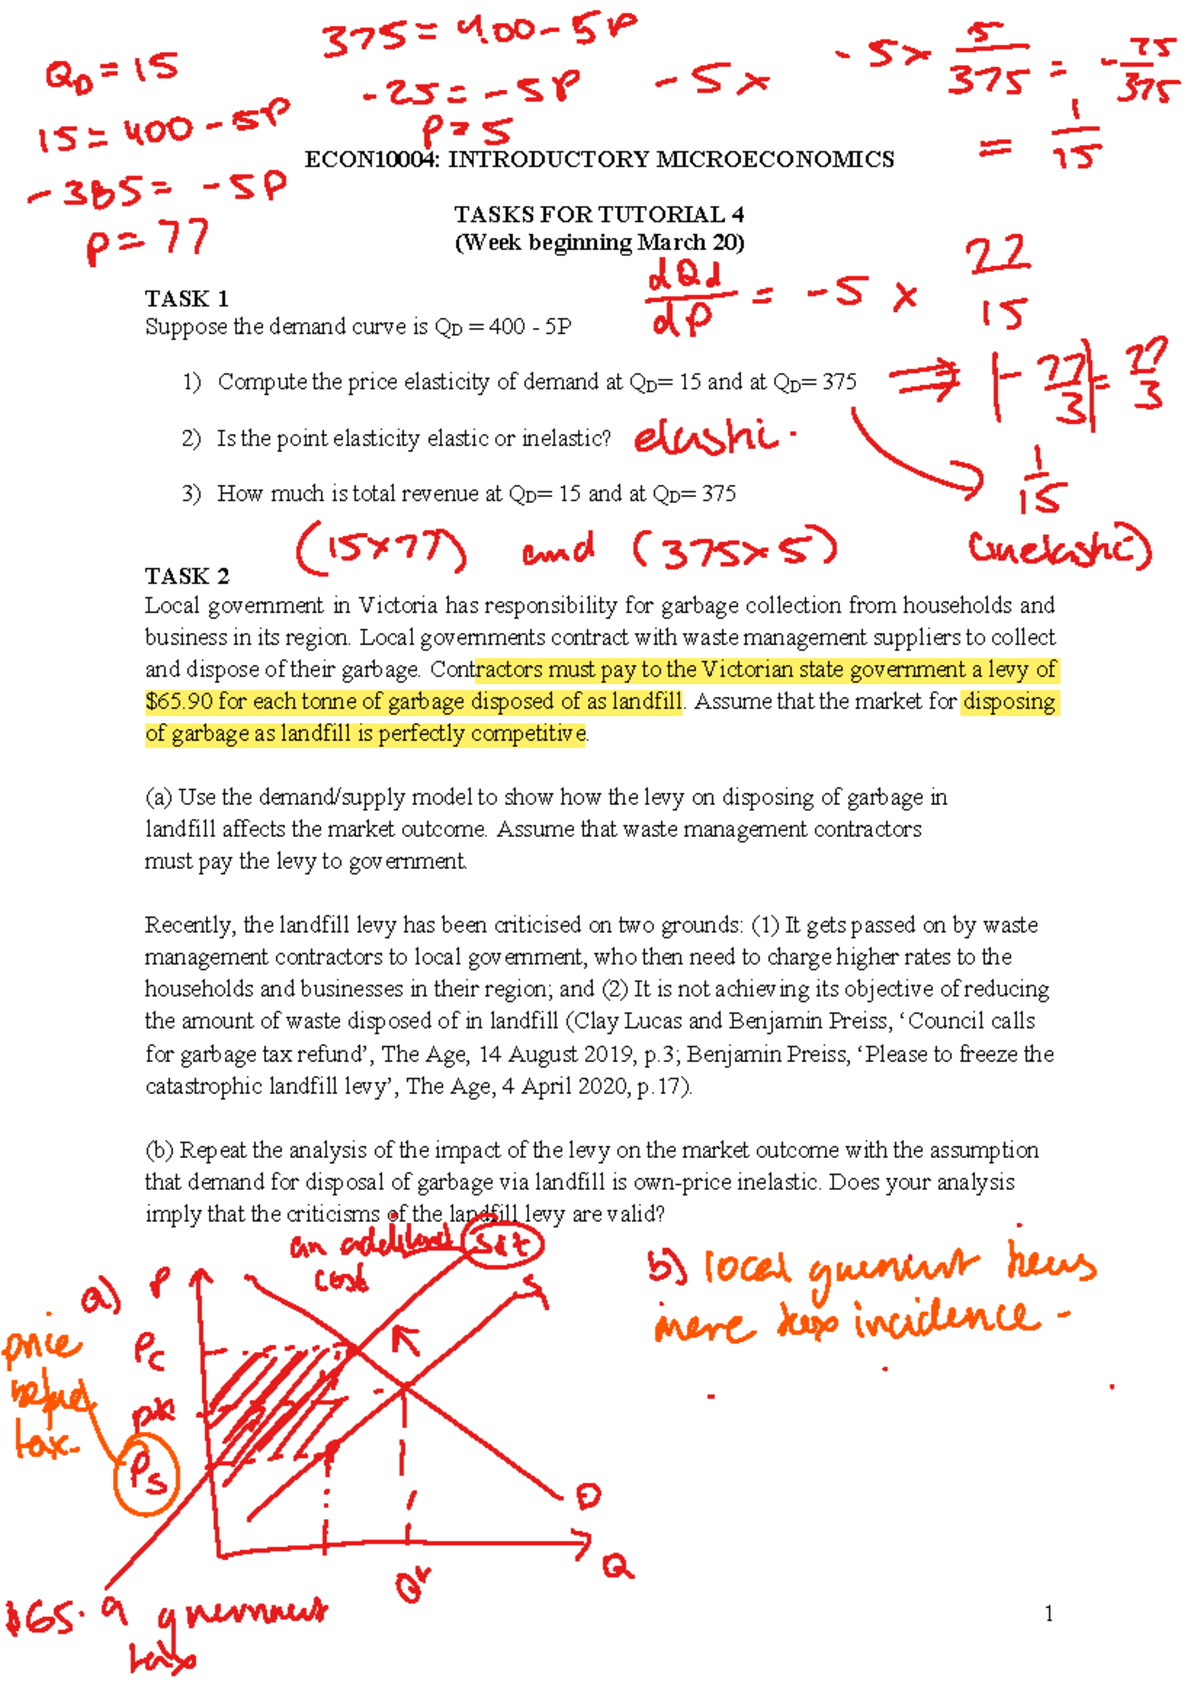 375 = 400 - 5P
QD = 15
-25 = -5P
- 5 x
- 5 x 5/375 = - 25/375
15 = 400 - 5P
P = 5
= 1/15
ECON10004: INTRODUCTORY MICROECONOMICS
- 385 = - 5P
P = 77
TASKS FOR TUTORIAL 4
(Week beginning March 20)
dQd/dP = - 5 x 77/15
TASK 1
Suppose the demand curve is QD = 400 - 5P
1) Compute the price elasticity of demand at QD= 15 and at QD= 375
⇒ |- 77/3| = 77/3
2) Is the point elasticity elastic or inelastic? elastic.
1/15
3) How much is total revenue at QD= 15 and at QD= 375
(15x77) and (375x5)
(inelastic)
TASK 2
Local government in Victoria has responsibility for garbage collection from households and
business in its region. Local governments contract with waste management suppliers to collect
and dispose of their garbage. Contractors must pay to the Victorian state government a levy of
$65.90 for each tonne of garbage disposed of as landfill. Assume that the market for disposing
of garbage as landfill is perfectly competitive.
(a) Use the demand/supply model to show how the levy on disposing of garbage in
landfill affects the market outcome. Assume that waste management contractors
must pay the levy to government.
Recently, the landfill levy has been criticised on two grounds: (1) It gets passed on by waste
management contractors to local government, who then need to charge higher rates to the
households and businesses in their region; and (2) It is not achieving its objective of reducing
the amount of waste disposed of in landfill (Clay Lucas and Benjamin Preiss, ‘Council calls
for garbage tax refund’, The Age, 14 August 2019, p.3; Benjamin Preiss, ‘Please to freeze the
catastrophic landfill levy’, The Age, 4 April 2020, p.17).
(b) Repeat the analysis of the impact of the levy on the market outcome with the assumption
that demand for disposal of garbage via landfill is own-price inelastic. Does your analysis
imply that the criticisms of the landfill levy are valid?
an additional
cost
S+t
a)
P
S
b) local government bears
more tax incidence -
price
before
tax.
Pc
P*
Ps
D
Q*
Q
$65.9 government
tax
1